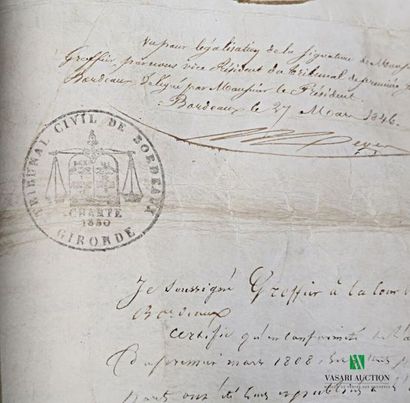 Vu pour légalisation de la signature de Monsieur
Greffier, par nous vice Président du tribunal de première
Bordeaux délégué par Monsieur le Président
Bordeaux le 27 Mars 1846.
TRIBUNAL CIVIL DE BORDEAUX
CHARTE
1830
GIRONDE
Je soussigné Greffier à la Cour
Bordeaux
certifie qu'en conformité
du premier mars 1808
VASARI AUCTION